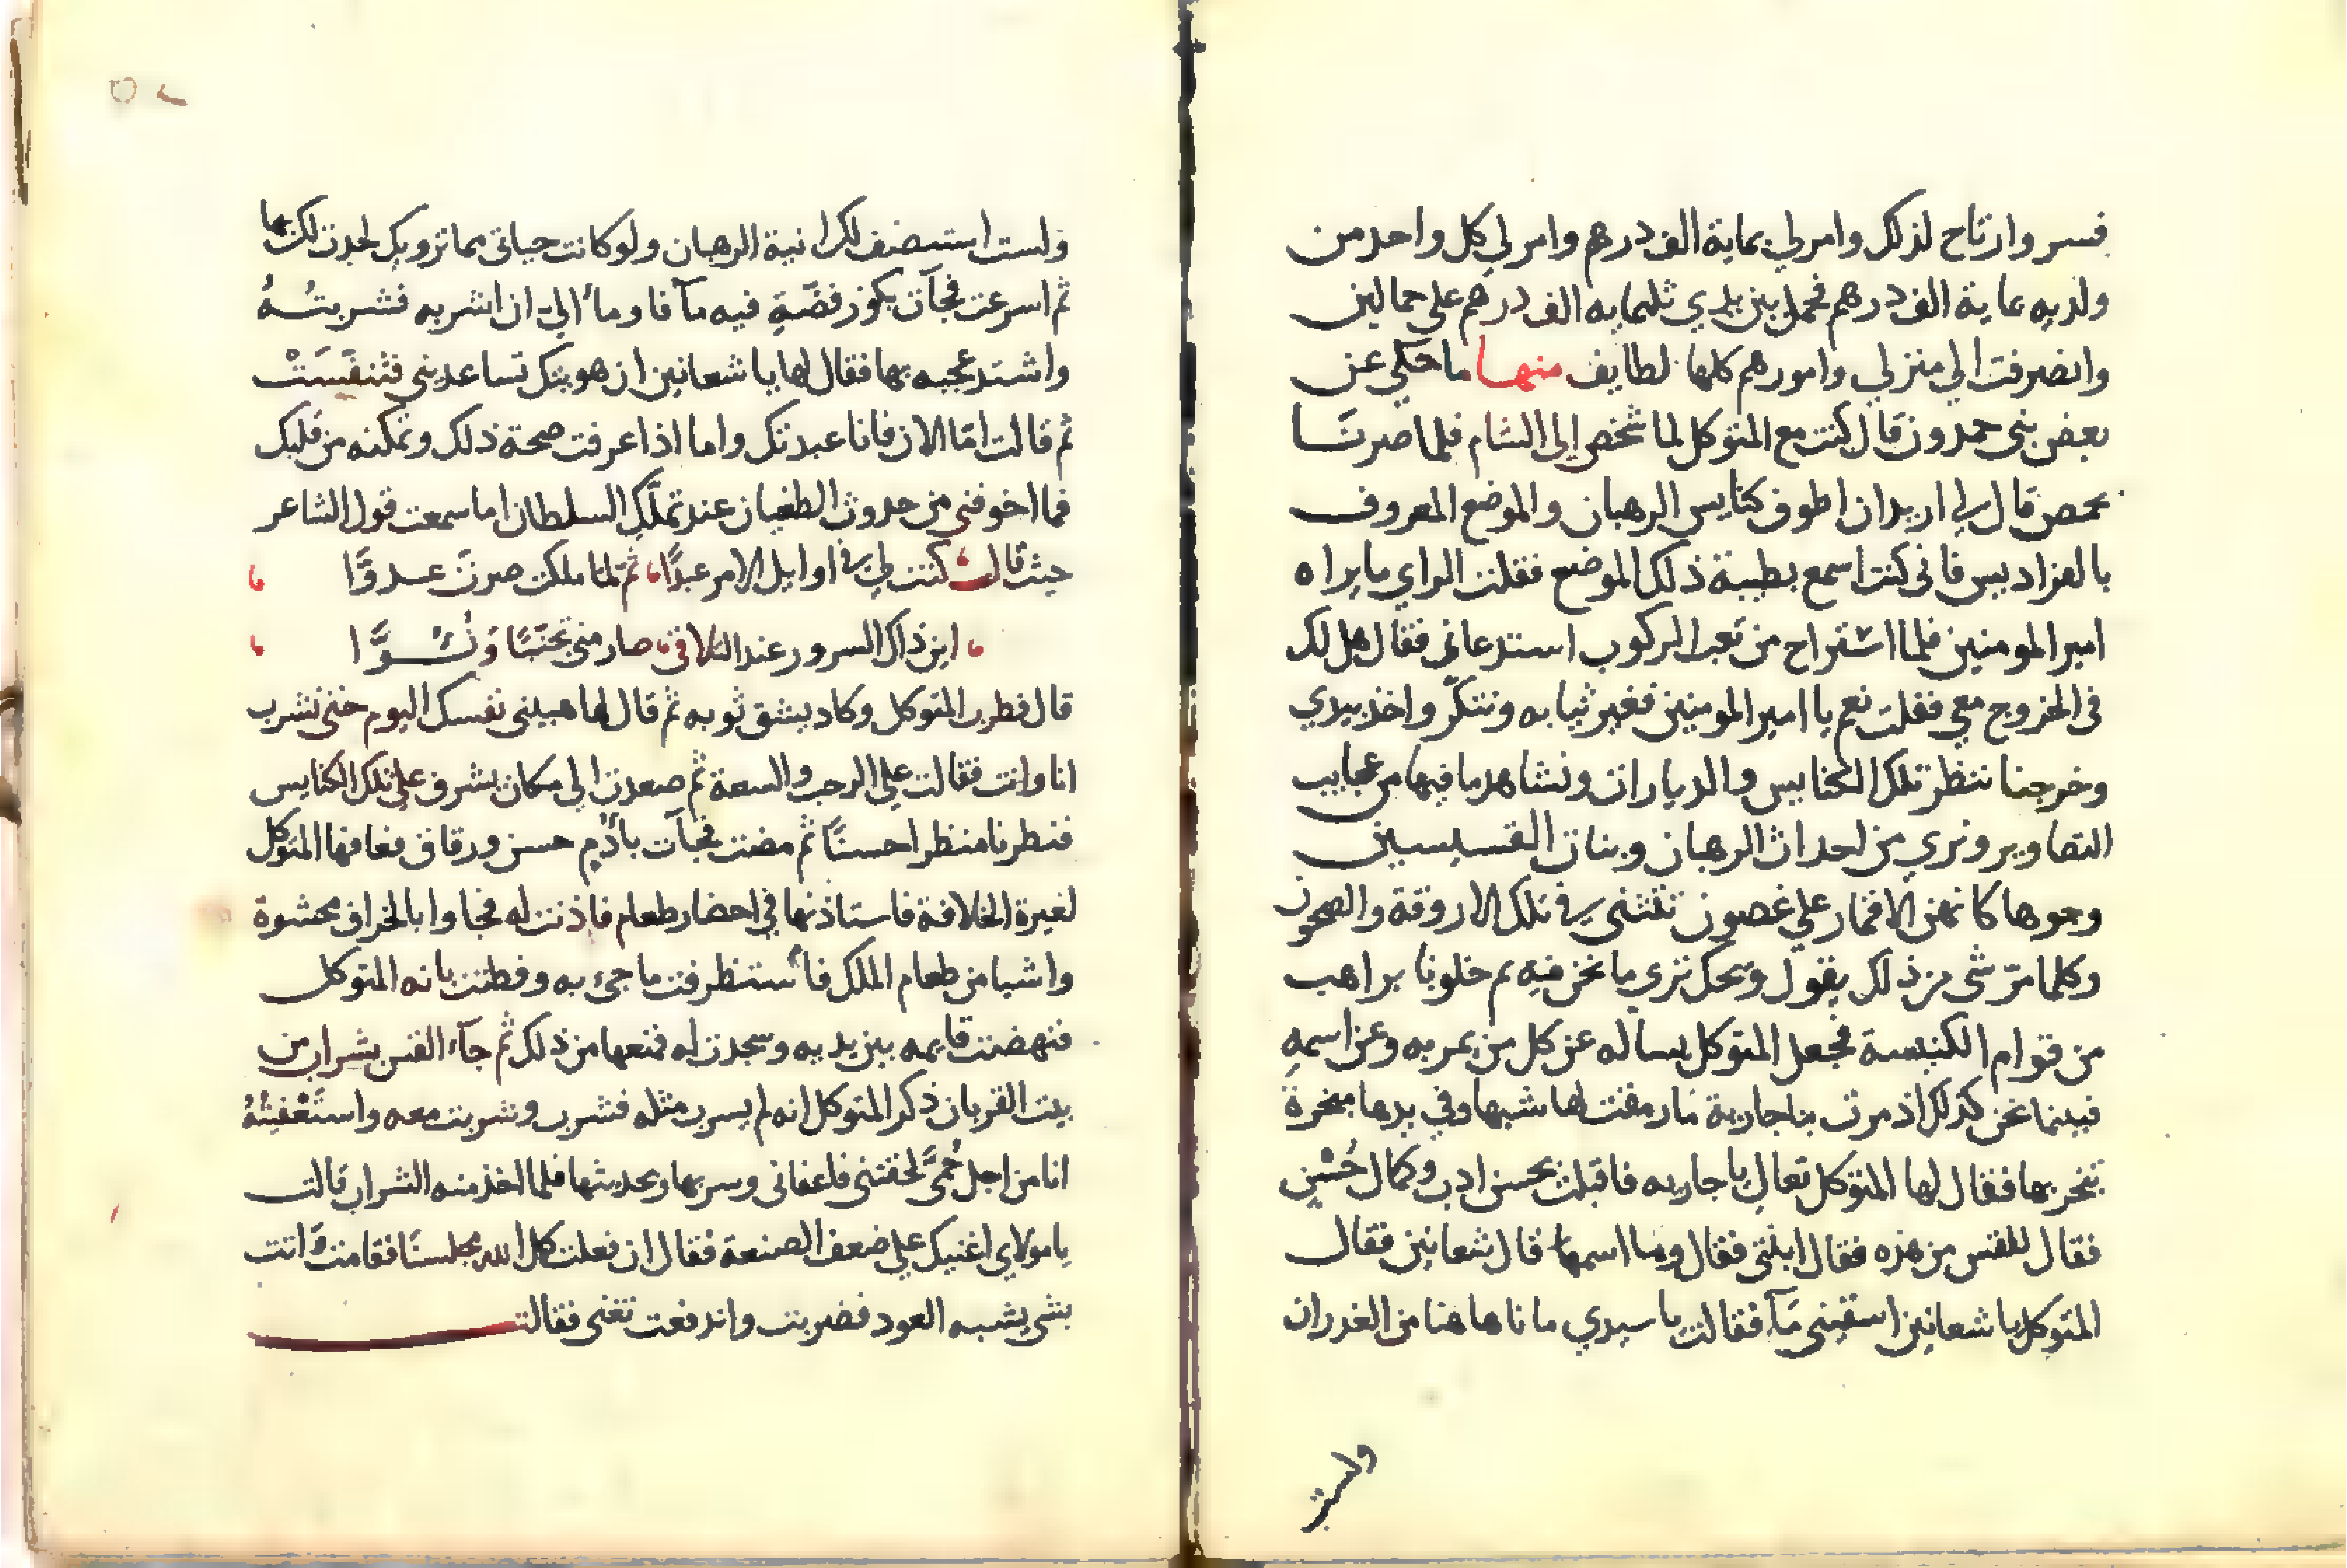 فسر وارتاح لذلك وامر لي بماية الف درهم وامر لي كل واحد من
ولديه بماية الف درهم فحمل بين يدي ثلثمايه الف درهم علي حمالين
وانصرفت الي منزلي وامورهم كلها لطايف منها ما حكي عن
بعض بني حمدون قال كنت مع المتوكل لما شخص إلى الشام فلما صرنا
بحمص قال لي اريد ان اطوف كنايس الرهبان والموضع المعروف
بالفراديس فاني كنت اسمع بطيبة ذلك الموضع فقلت الراي ما يراه
امير المومنين فلما استراح من تعب الركوب استدعاني فقال هل لك
في الخروج معي فقلت نعم يا امير المومنين فغير ثيابه وتنكّر واخذ بيدي
وخرجنا ننظر تلك الكنايس والديارات ونشاهد ما فيها من عجايب
التصاوير ونري من احداث الرهبان وبنات القسيسين
وجوها كانهن الاقمار علي غصون تنثني في تلك الاروقة والصحون
وكلما مرّ شي من ذلك يقول ويحك تري ما نحن فيه ثم خلونا براهب
من قوام الكنيسة فجعل المتوكل يساله عن كل من يمر به وعن اسمهِ
فبينما نحن كذلك اذ مرت بنا جارية ما رمقت لها شبها وفي يدها مبخرة
تبخر بها فقال لها المتوكل تعال يا جاريه فاقبلت بحسن ادب وكمال حُسْنٍ
فقال للقس من هذه فقال ابنتي فقال وما اسمها قال شعانين فقال
المتوكل يا شعانين اسقيني مَآ فقالت يا سيدي ما نا هاهنا من الغدران
ولست
ولست استنضف لك انية الرهبان ولو كانت حياتي مما ترويك لجدت لك بها
ثم اسرعت فجآت بكوز فضّةٍ فيه مآ فاومأ الي ان اشربه فشربتُهُ
واشتد عجبه بها فقال لها يا شعانين ان هويتك تساعديني فتنفَّسَتْ
ثم قالت امّا الان فانا عبدتك واما اذا عرفت صحة ذلك وتمكنه من قلبك
فما اخوفني من حدوث الطغيان عند تملّك السلطان اما سمعت قول الشاعر
حيث قال كنت لي في اوايل الامر عبدًا ثم لما ملكت صرت عدوَّا
اين ذاك السرور عند التلاقي صار مني تجنّبًا وَنُبُوَّا
قال فطرب المتوكل وكاد يشق ثوبه ثم قال لها هبيني نفسك اليوم حتى نشرب
انا وانت فقالت علي الرحب والسعة ثم صعدت الي مكان يشرف علي تلك الكنايس
فنظرنا منظرا حسنًا ثم مضت فجآت بأُدْمٍ حسن ورقاق فعافها المتوكل
لغيرة الخلافة فاستاذنها في احضار طعام فاذنت له فجاوا بالخراف محشوة
واشيا من طعام الملك فاستظرفت ما جيء به وفطنت بانه المتوكل
فنهضت قايمه بين يديه وسجدت له فمنعها من ذلك ثم جآء القس بشراب من
بيت القربان ذكر المتوكل انه لم يشرب مثله فشرب وشربت معه واستَعْفَيْتُهُ
انا من اجل حُمَّى لحقتني فاعفاني وسر بها وبحديثها فلما اخذ منه الشراب قالت
يا مولاي اغنيك علي ضعف الصنعة فقال ان فعلت كل الله مجلسنا فقامت وَاتت
بشي يشبه العود فضربت واندفعت تغني فقالت